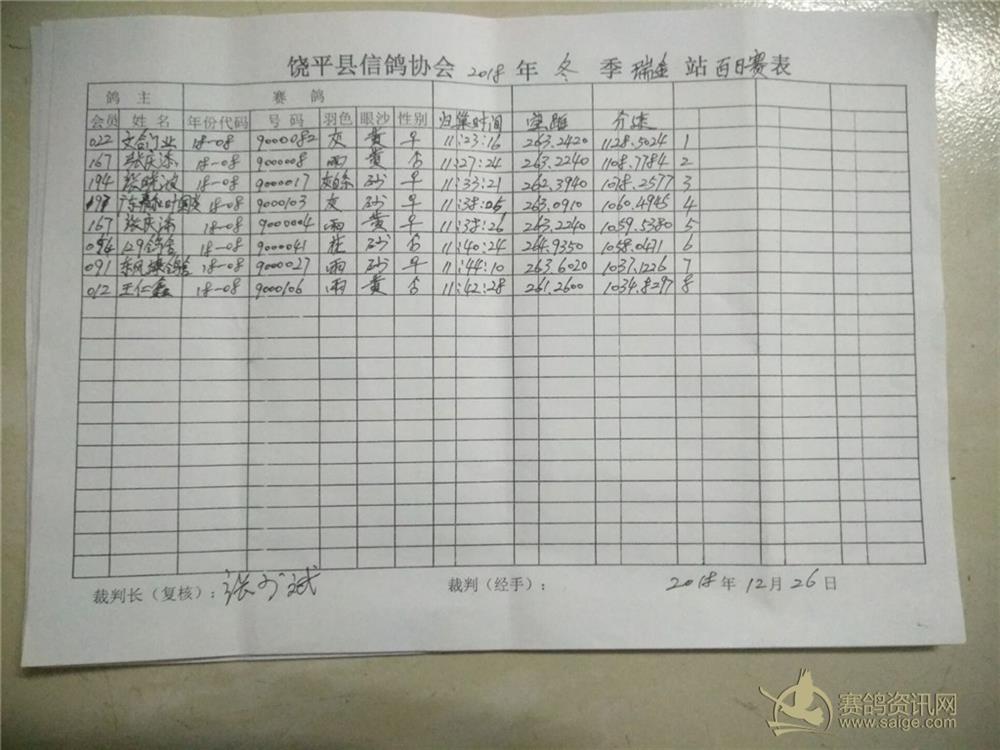 饶平县信鸽协会 2018 年 冬 季 瑞金 站 百日赛表
鸽 主 赛 鸽
会员 姓 名 年份代码 号 码 羽色 眼沙 性别 归巢时间 空距 分速
022 文 业 18-08 9000082 灰 黄 早 11:23:16 263.2420 1128.5024 1
167 张庆 18-08 900008 雨 黄 否 11:27:24 263.2240 1108.7784 2
194 张晓波 18-08 9000017 砂 早 11:33:21 262.3940 1078.2577 3
18-08 9000103 灰 砂 早 11:38:05 263.0910 1060.4945 4
167 张庆 18-08 9000004 雨 黄 早 11:38:26 263.2240 1059.5380 5
129鸽舍 18-08 9000041 砂 否 11:40:24 264.9350 1058.0471 6
091 18-08 9000027 雨 砂 早 11:44:10 263.6020 1037.1226 7
012 王仁鑫 18-08 9000106 雨 黄 否 11:42:28 261.2600 1034.8297 8
裁判长（复核）： 张 斌 裁判（经手）： 2018 年 12 月 26 日
赛鸽资讯网
www.saige.com